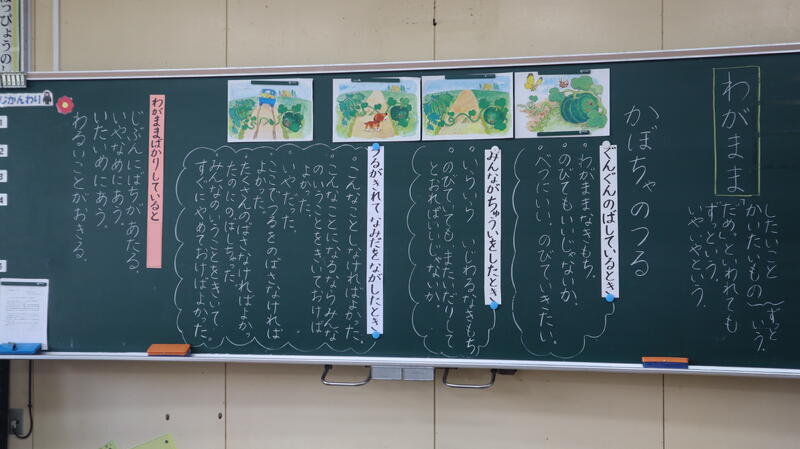 わがまま
したいこと
かいたいもの
だめ、といわれても
ずっという。
いやいやという。
ずっと
いう。
かぼちゃのつる
ぐんぐんのばしているとき
・わがままなきもち。
・のびてもいいじゃないか。
・べつにいい。のびていきたい。
みんながちゅういをしたとき
・いらいら いじわるなきもち
・のびていても、またいだりして
とおればいいじゃないか。
つるがきれてなみだをながしたとき
・こんなことしなければよかった。
・こんなことになるならみんな
のいうことをきいておけば
よかった。
・いやだった。
・ここでつるをのばさなければ
よかった。
・たくさんのばさなければよかっ
たのに のばしちゃった。
・みんなのいうことをきいて
すぐにやめておけばよかった。
わがままばかりしていると
じぶんにばちがあたる。
いやなめにあう。
いたいめにあう。
わるいことがおきる。
じかんわり
1
2
3
4
5
はっぴょうのし